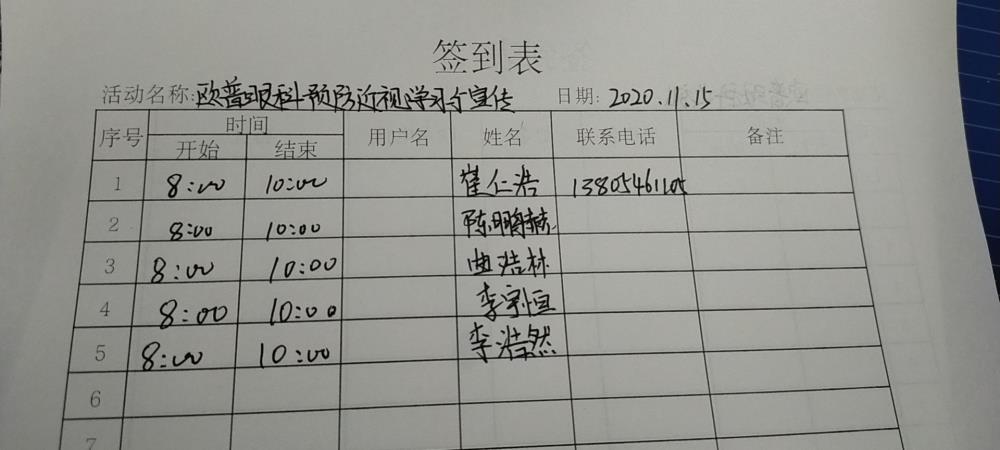 签到表
活动名称:欧普眼科预防近视学习个宣传 日期: 2020.11.15
序号 时间 用户名 姓名 联系电话 备注
开始 结束
1 8:00 10:00 崔仁浩 13805461105
2 8:00 10:00 陈鹏赫
3 8:00 10:00 曲浩林
4 8:00 10:00 李宇恒
5 8:00 10:00 李浩然
6
7